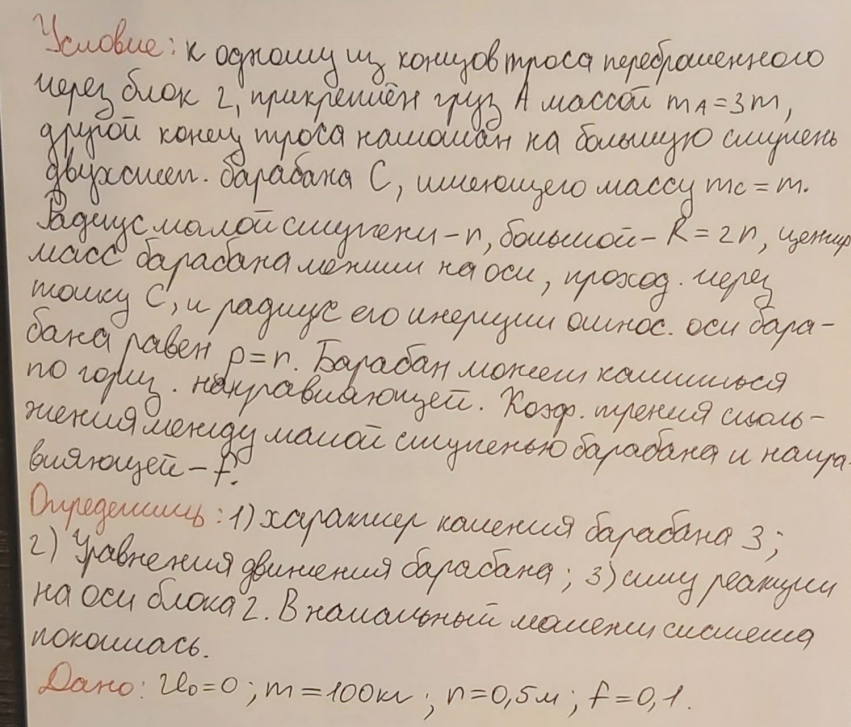 Условие: к одному из концов троса переброшенного
через блок 2, прикреплён груз А массой mA=3m,
другой конец троса намотан на большую ступень
двухступ. барабана С, имеющего массу mc=m.
Радиус малой ступени-r, большой-R=2r, центр
масс барабана лежит на оси, проход. через
точку С, и радиус его инерции относ. оси бара-
бана равен ρ=r. Барабан может катиться
по гориз. направляющей. Коэф. трения сколь-
жения между малой ступенью барабана и напра-
вляющей-f.
Определить: 1) характер качения барабана 3;
2) Уравнения движения барабана; 3) силу реакции
на оси блока 2. В начальный момент система
покоилась.
Дано: V0=0; m=100кг; r=0,5м; f=0,1.